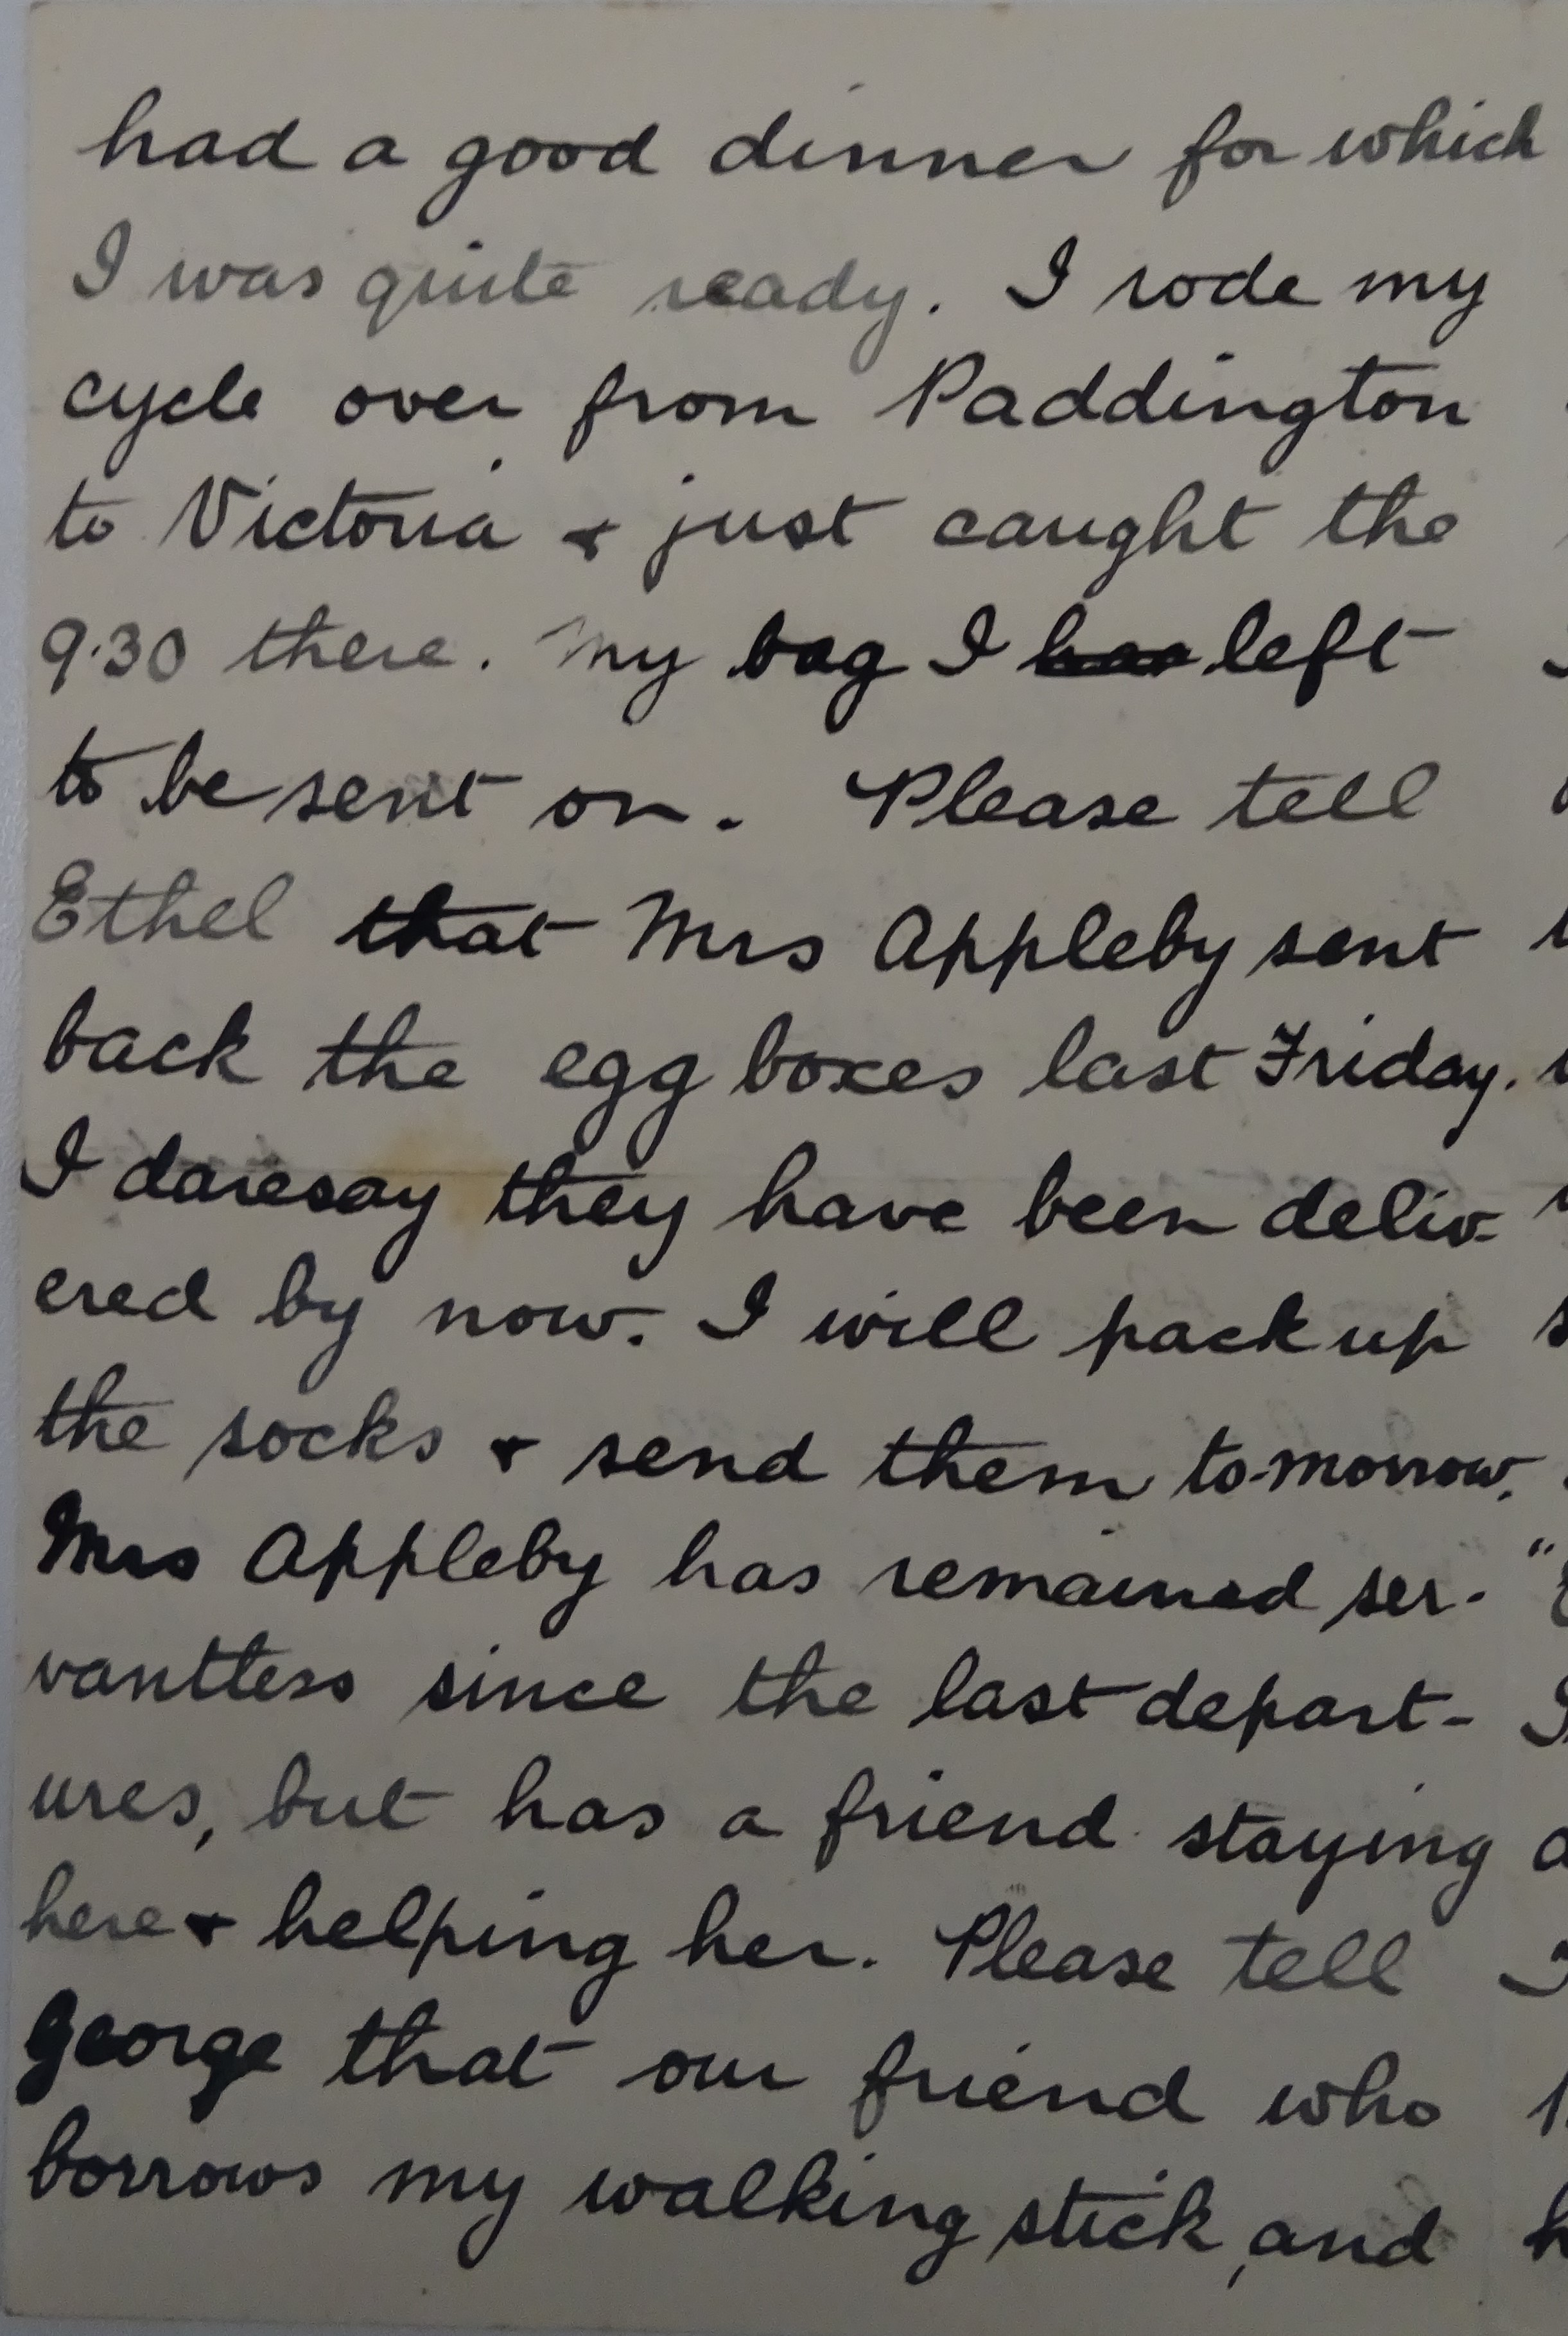 had a good dinner for which
I was quite ready. I rode my
cycle over from Paddington
to Victoria & just caught the
9.30 there. My bag I left
to be sent on. Please tell
Ethel that Mrs Appleby sent
back the egg boxes last Friday.
I daresay they have been deliv-
ered by now. I will pack up
the socks & send them to-morrow.
Mrs Appleby has remained ser-
vantless since the last depart-
ures, but has a friend staying
here & helping her. Please tell
George that our friend who
borrows my walking stick, and